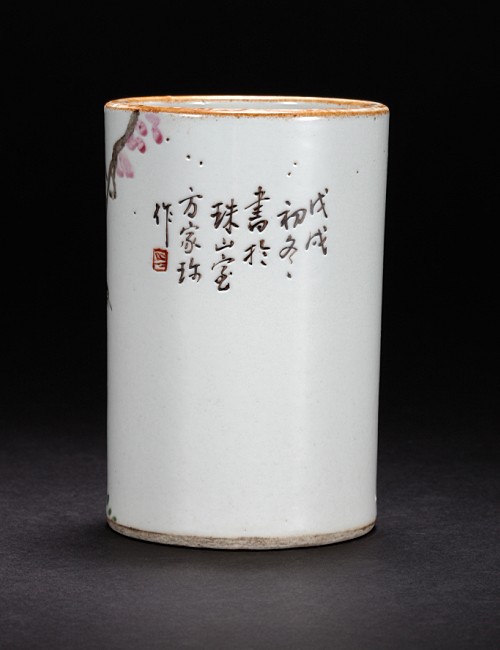 戊戌
初冬、
書於
珠山室
方家珍
作